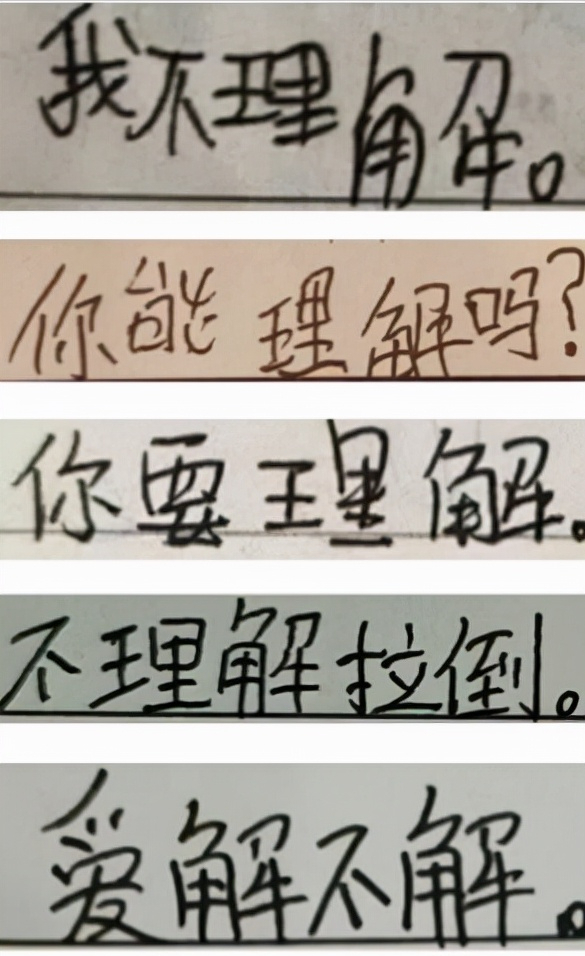 我不理解。
你能理解吗?
你要理解。
不理解拉倒。
爱解不解。